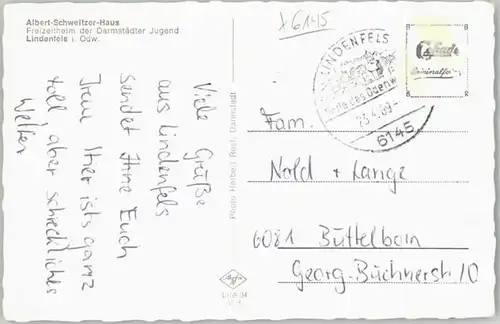 Albert-Schweitzer-Haus
Freizeitheim der Darmstädter Jugend
Lindenfels i. Odw.
A6145
LINDENFELS
Perle des Odenw
25.4.69-
6145
Viele Grüße
aus Lindenfels
sendet Ihne Euch
Irene Hier ists ganz
toll, aber schreckliches
Wetter
Photo Herbert Rost, Darmstadt
Agfa
Fam.
Nold + Lange
6081 Büttelborn
Georg-Büchnerstr. 10